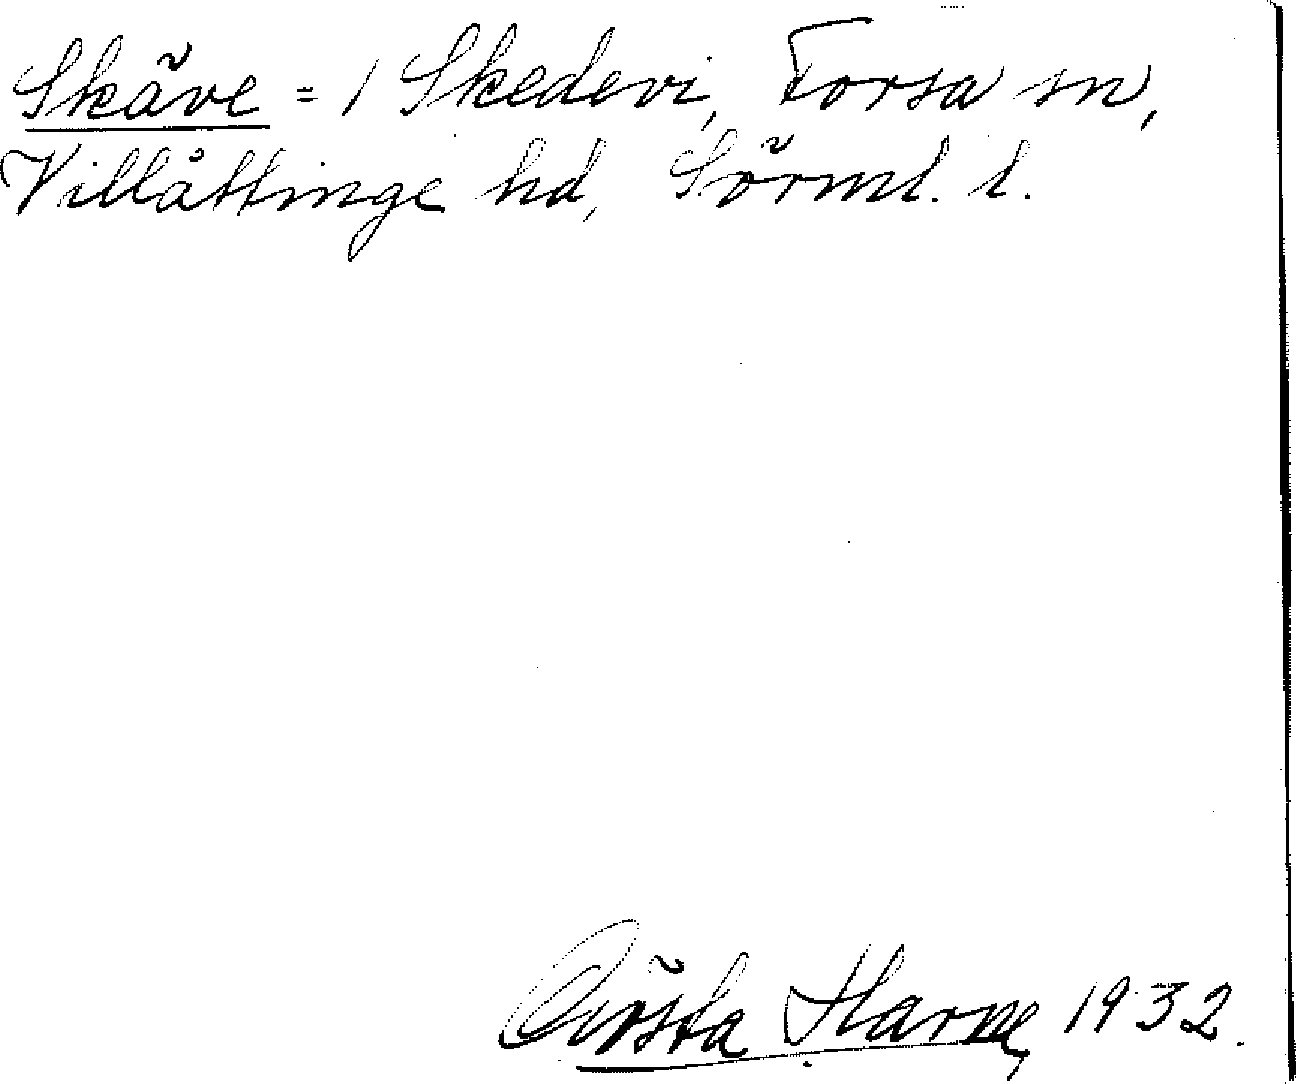 Skäve = 1 Skedevi, Forsa sn,
Villåttinge hd, Sörml. l.
Gösta Harne, 1932.